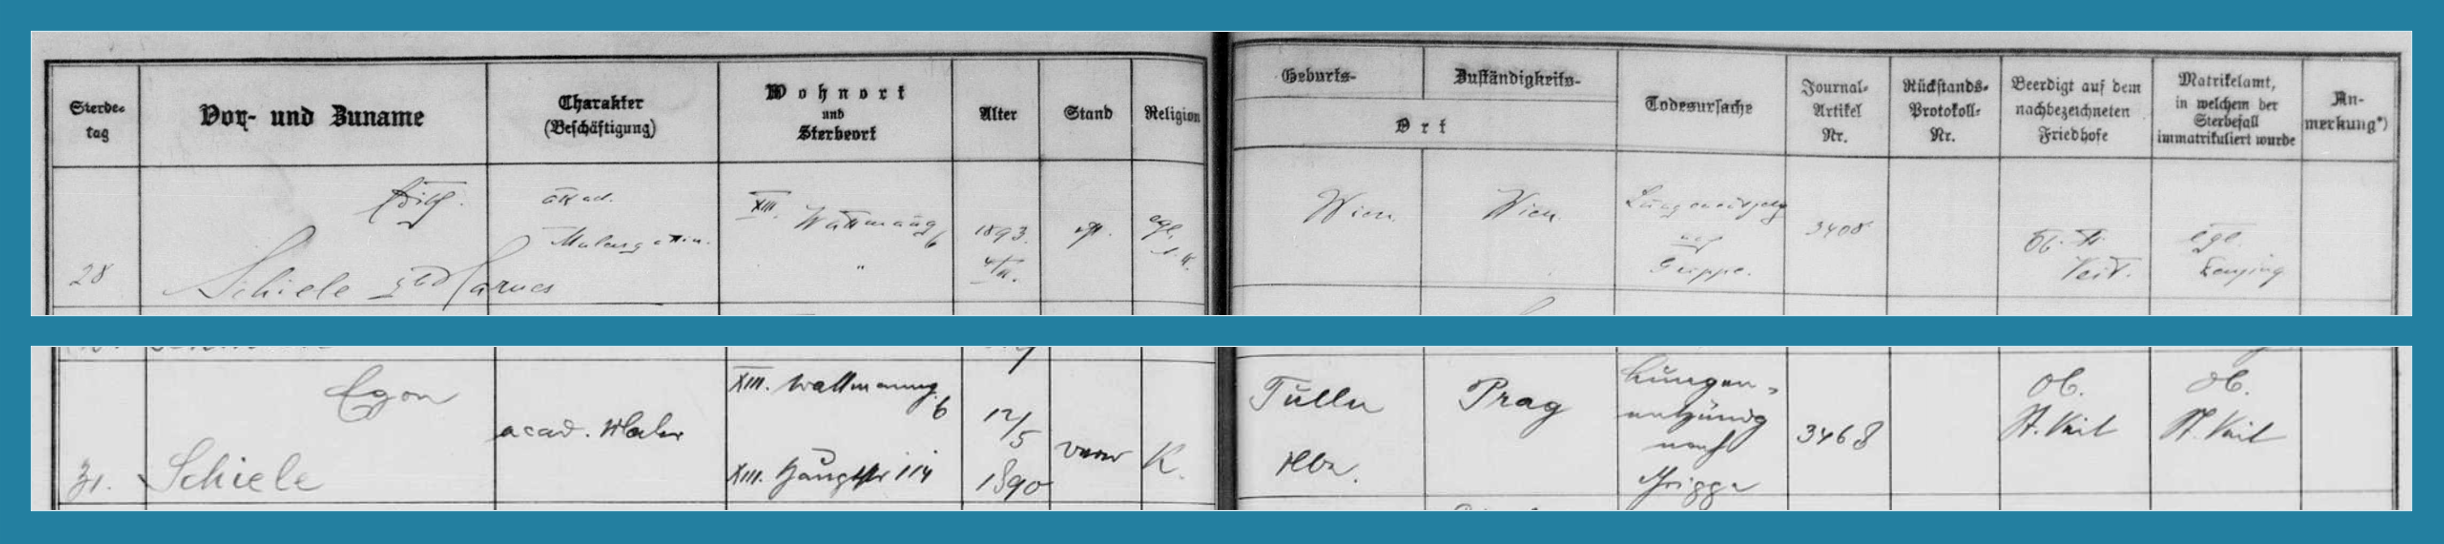 Sterbe-
tag
Vor- und Zuname
Charakter
(Beschäftigung)
Wohnort
und
Sterbeort
Alter
Stand
Religion
Geburts-
Zuständigkeits-
Ort
Todesursache
Journal-
Artikel
Nr.
Rückstands-
Protokoll-
Nr.
Beerdigt auf dem
nachbezeichneten
Friedhofe
Matrikelamt,
in welchem der
Sterbefall
immatrikuliert wurde
An-
merkung*)
28
Edith
Schiele geb Harms
akad.
Malersgattin.
XIII. Wattmanng
6
"
1893.
4/II.
egl.
Wien
Wien
Lungenentzdg
nach
Grippe.
3408
Ob. St.
Veit.
egl.
31.
Egon
Schiele
acad. Maler
XIII. Wattmanng.
6
XIII. Hauptstr 114
12/5
1890
K.
Tulln
Prag
Lungen-
entzündg
nach
Grippe
3468
Ob.
St. Veit
Ob.
St. Veit